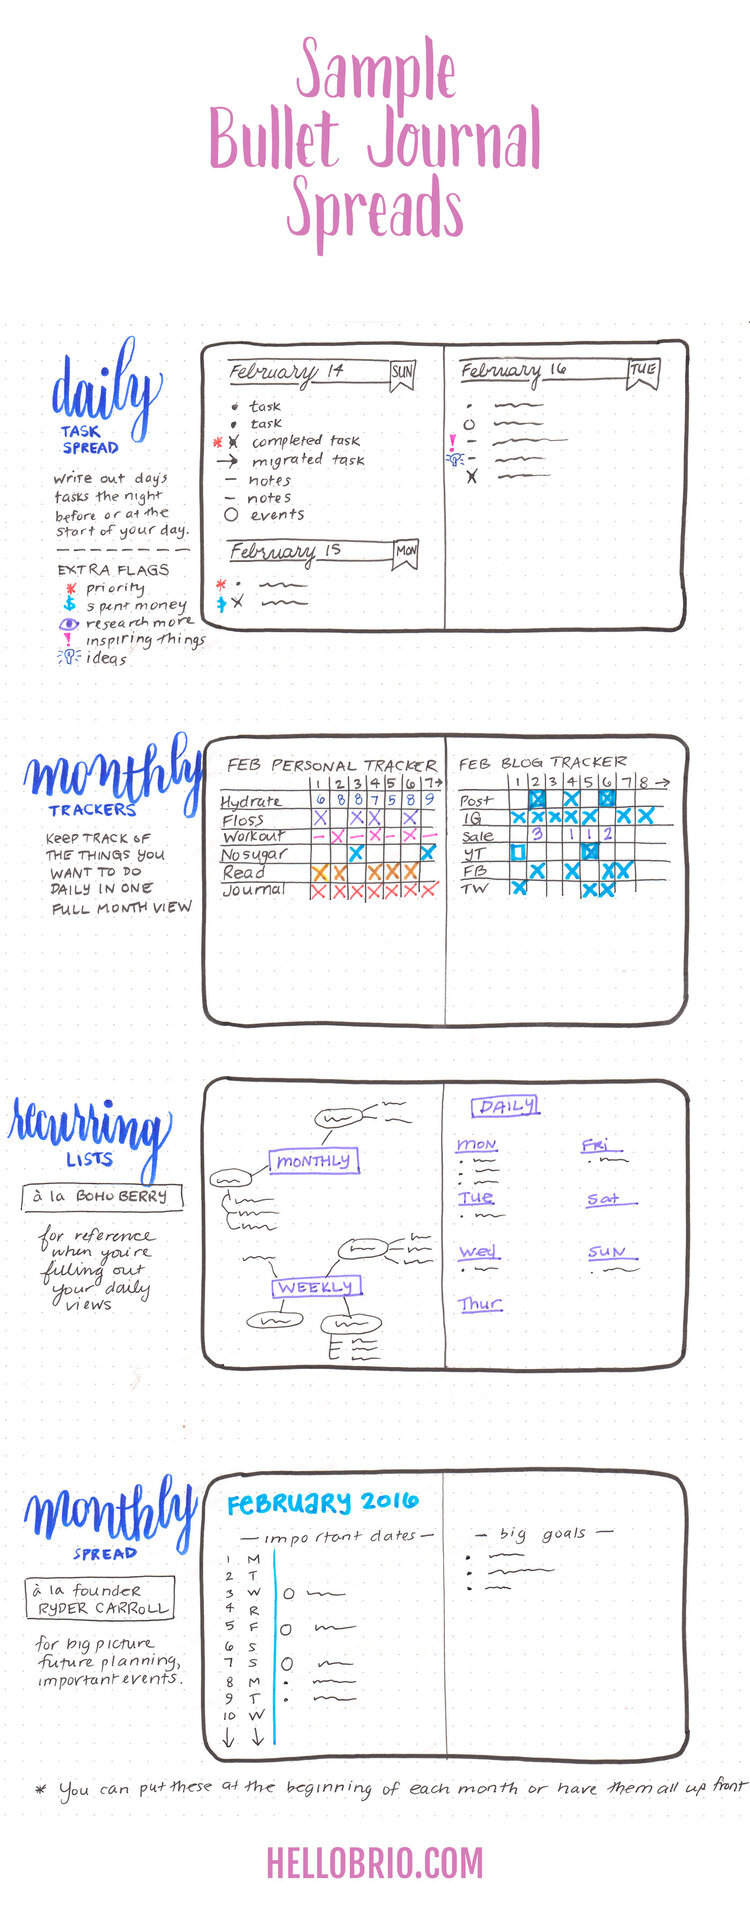 Sample
Bullet Journal
Spreads
daily
TASK
SPREAD
Write out day's
tasks the night
before or at the
start of your day.
EXTRA FLAGS
* priority
$ spent money
research more
! inspiring things
ideas
February 14 SUN
• task
• task
* X completed task
→ migrated task
– notes
– notes
O events
February 15 MON
* •
$ X
February 16 TUE
•
O
! –
–
X
monthly
TRACKERS
KEEP TRACK OF
THE THINGS YOU
WANT TO DO
DAILY IN ONE
FULL MONTH VIEW
FEB PERSONAL TRACKER
1 2 3 4 5 6 7 →
Hydrate 6 8 8 7 5 8 9
Floss X X X X
Workout – X – X – X –
No sugar X X
Read X X X X X
Journal X X X X X X X
FEB BLOG TRACKER
1 2 3 4 5 6 7 8 →
Post X X X
IG X X X X X X X
Sale 3 1 1 2
YT X
FB X X X X
TW X X X
recurring
LISTS
à la BOHO BERRY
for reference
when you're
filling out
your daily
views
MONTHLY
WEEKLY
DAILY
MON
Tue
Wed
Thur
Fri
Sat
SUN
monthly
SPREAD
à la founder
RYDER CARROLL
for big picture
future planning,
important events.
FEBRUARY 2016
– important dates –
1 M
2 T
3 W O
4 R
5 F O
6 S
7 S O
8 M •
9 T •
10 W
↓ ↓
– big goals –
•
•
•
* You can put these at the beginning of each month or have them all up front
HELLOBRIO.COM